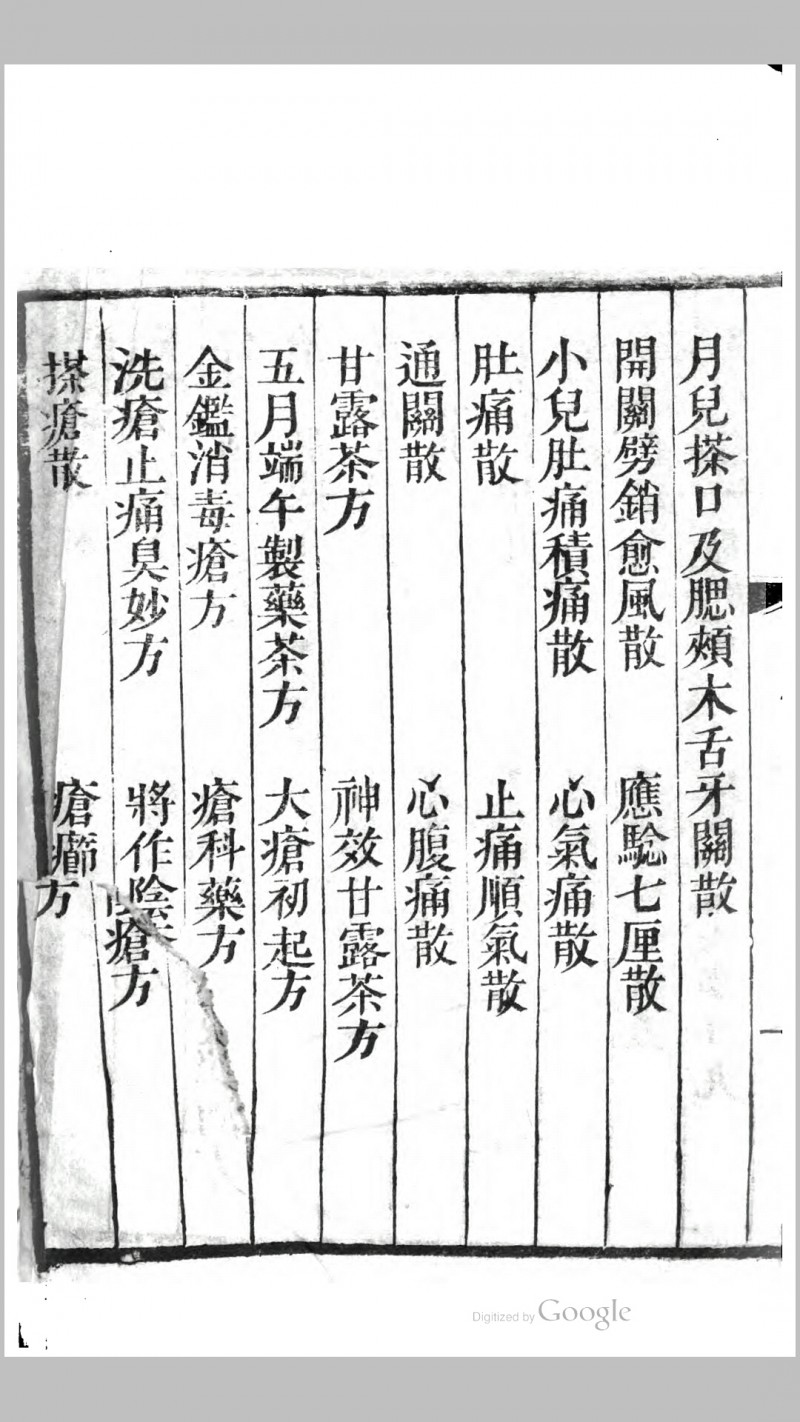 月兒搽口及腮頰木舌牙關散
開關劈銷愈風散　應騐七厘散
小兒肚痛積痛散　心氣痛散
肚痛散　止痛順氣散
通關散　心腹痛散
甘露茶方　神效甘露茶方
五月端午製藥茶方　大瘡初起方
金鑑消毒瘡方　瘡科藥方
洗瘡止痛臭妙方　將作陰瘡方
搽瘡散　瘡癤方
Digitized by Google